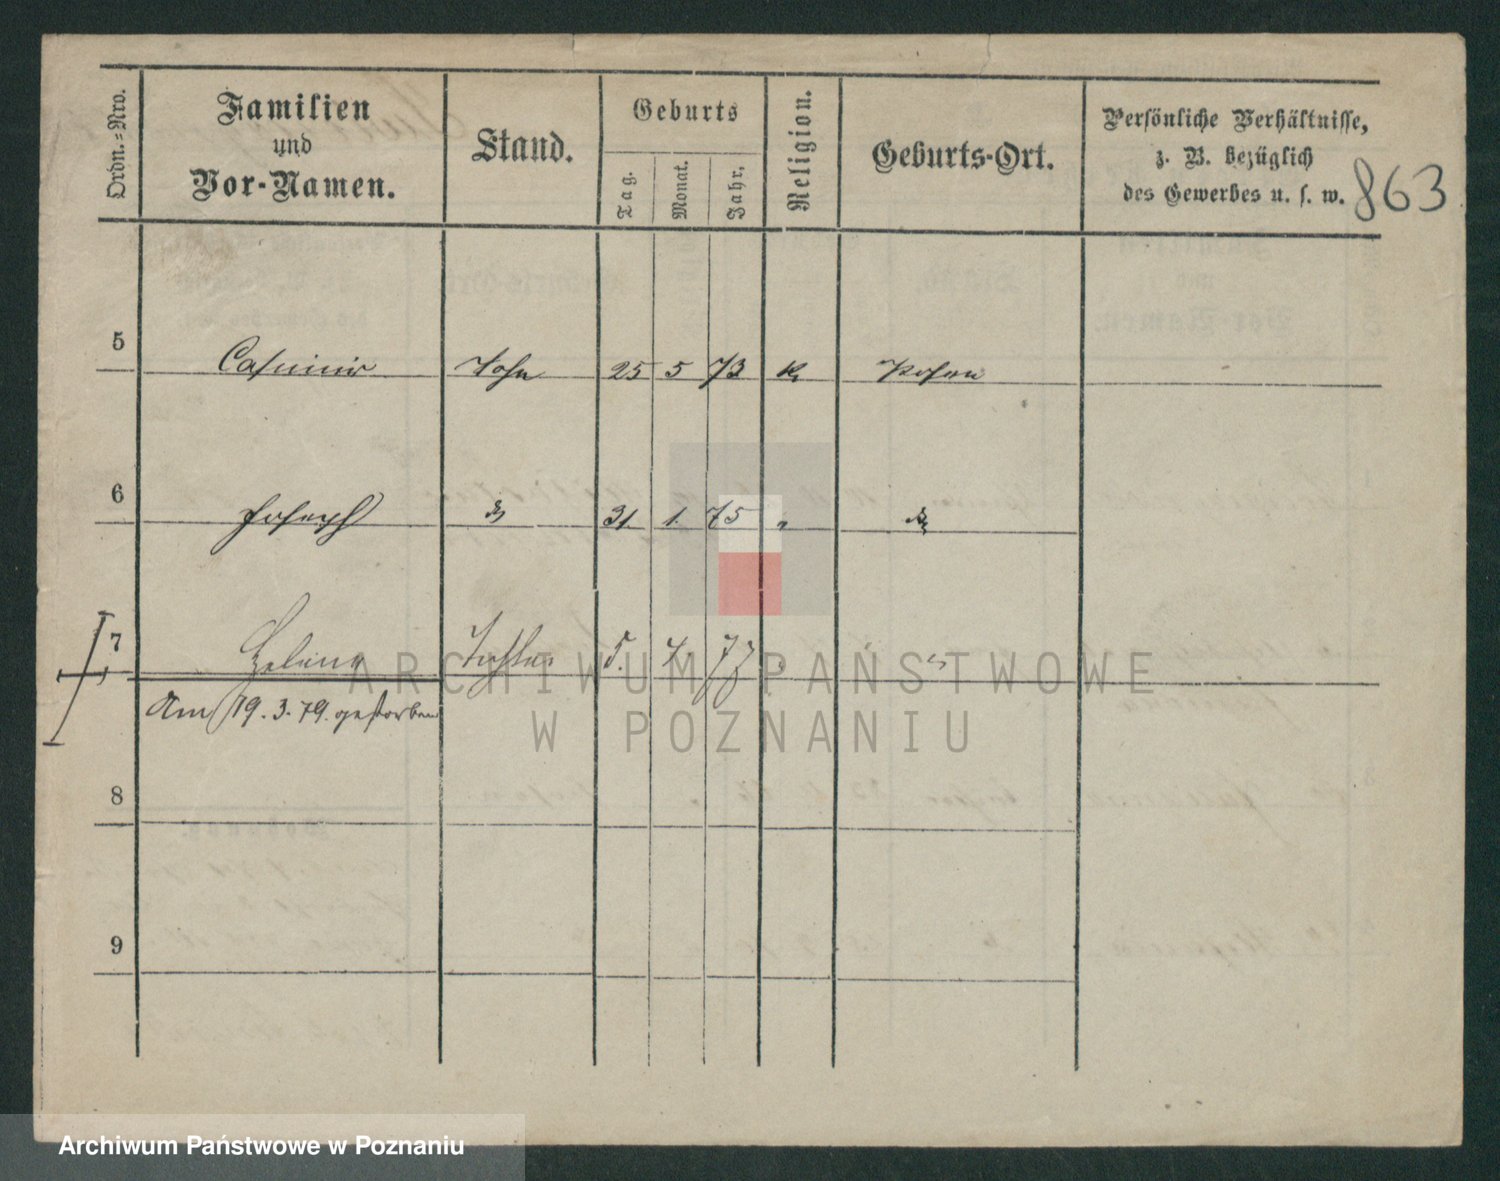 Ordn.-Nro.
Familien
und
Vor-Namen.
Stand.
Geburts
Tag.
Monat.
Jahr.
Religion.
Geburts-Ort.
Persönliche Verhältnisse,
z. B. bezüglich
des Gewerbes u. s. w.
863
5 Casimir Sohn 25 5 73 k Posen
6 Joseph 31 1. 75 "
7 Helene Tochter 5. 7. 77 "
Am 19. 3. 79. gestorben
8
9
ARCHIWUM PAŃSTWOWE
W POZNANIU
Archiwum Państwowe w Poznaniu